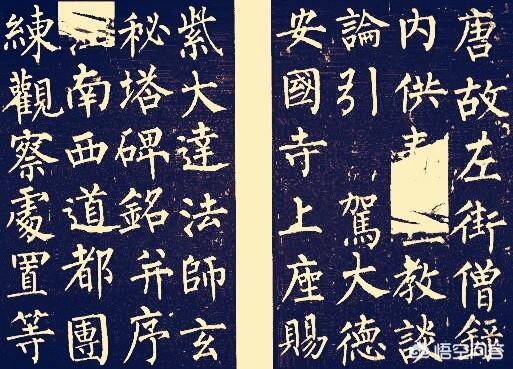 唐故左街僧錄
內供教談
論引駕大德
安國寺上座賜
紫大達法師玄
秘塔碑銘并序
南西道都團
練觀察處置等
悟空问答